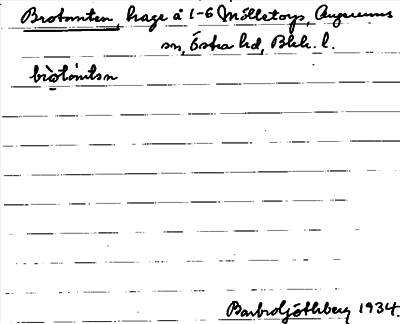 Brotomten, hage å 1-6 Mölletorp, Augerums
sn, Östra hd, Blek. l.
brotomtsn
Barbro Göthberg 1934.